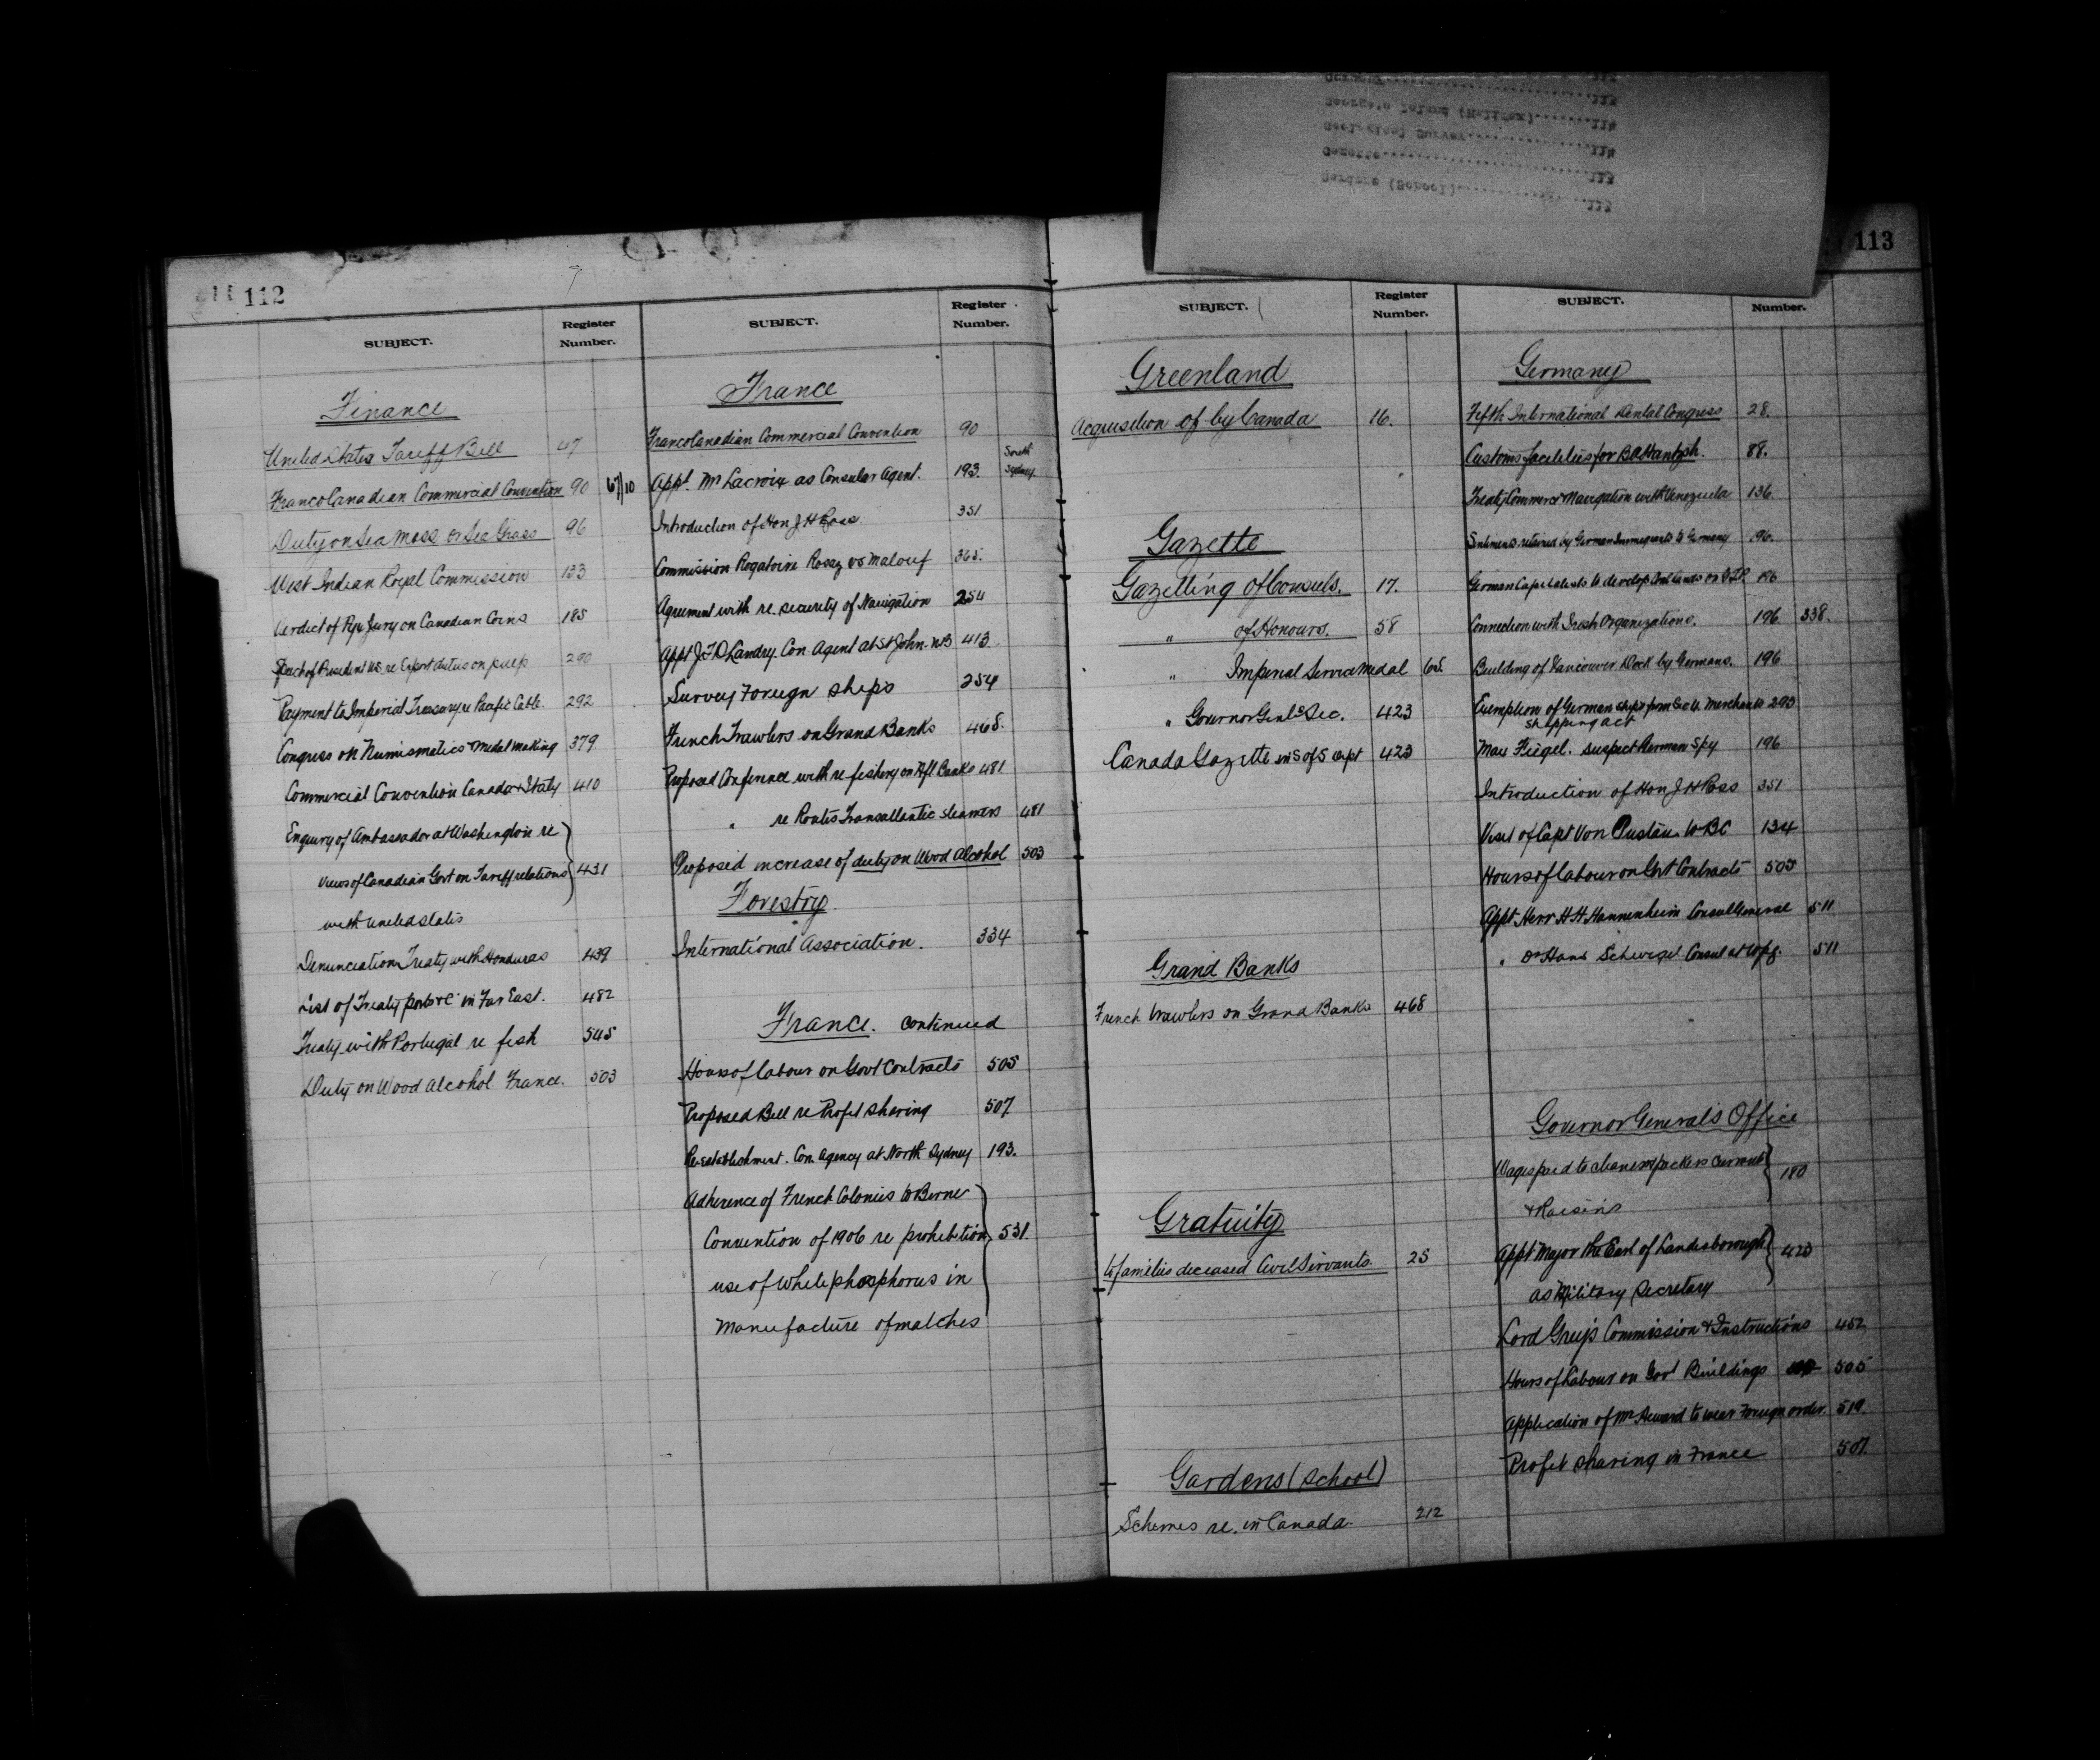 112
SUBJECT.
Register
Number.
Finance
United States Tariff Bill 47
Franco Canadian Commercial Convention 90 67/10
Duty on Sea Moss or Sea Grass 96
West Indian Royal Commission 133
Verdict of Pyx Jury on Canadian Coins 185
Speech of President U.S. re Export duties on pulp 290
Payment to Imperial Treasury re Pacific Cable. 292
Congress on Numismatics & Medal making 379
Commercial Convention Canada & Italy 410
Enquiry of Ambassador at Washington re
views of Canadian Govt on Tariff relations 431
with United States
Denunciation Treaty with Honduras 439
List of Treaty ports &c in Far East. 482
Treaty with Portugal re fish 545
Duty on Wood Alcohol France. 503
SUBJECT.
Register
Number.
France
Franco Canadian Commercial Convention 90
Appt. Mr Lacroix as Consular Agent. 193. South Sydney
Introduction of Hon J H Ross 351
Commission Rogatoire Rosaz vs Malouf 365.
Agreement with re. security of Navigation 254
Appt J.F.D Landry. Con. Agent at St John. NB 413
Survey Foreign ships 254
French Trawlers on Grand Banks 468.
Proposed Conference with re fishery on Nfl Banks 481
" re Routes Transatlantic steamers 481
Proposed increase of duty on Wood Alcohol 503
Forestry.
International Association. 334
France. continued
Hours of labour on Govt Contracts 505
Proposed Bill re Profit sharing 507
Re-establishment. Con. Agency at North Sydney 193.
Adherence of French Colonies to Berne
Convention of 1906 re prohibition 531.
use of White phosphorus in
Manufacture of matches
Gardens (School) 113
Gazette 113
Geological Survey 114
George's Island (Halifax) 114
113
SUBJECT.
Register
Number.
Greenland
Acquisition of by Canada 16.
Gazette
Gazetting of Consuls. 17.
" of Honours. 58
" Imperial Service Medal
" Governor Genl's Sec. 423
Canada Gazette 423
Grand Banks
French trawlers on Grand Banks 468
Gratuity
to families deceased Civil Servants. 25
Gardens (School)
Schemes re. in Canada. 212
SUBJECT.
Number.
Germany
Fifth International Dental Congress 28.
Customs facilities for 88.
Treaty Commerce & Navigation with Venezuela 136
by German Immigrants to Germany 196.
German Capitalists to develop 196
Connection with Irish Organizations. 196 338.
Building of Vancouver Dock by Germans. 196
Exemption of German ships from Merchants 293
shipping act
Max Fiegel. suspect German Spy 196
Introduction of Hon J H Ross 351
Visit of Capt Von to BC 134
Hours of labour on Govt Contracts 505
Appt Herr H H Hannenheim Consul General 511
" Dr Hans Consul at Wpg. 511
Governor General's Office
Wages paid to cleaners & packers currants 180
& Raisins
Appt Major the Earl of Landesborough 423
as Military Secretary
Lord Grey's Commission & Instructions 452
Hours of Labour on Govt Buildings 505
Application of Mr to wear Foreign order. 519.
Profit sharing in France 507